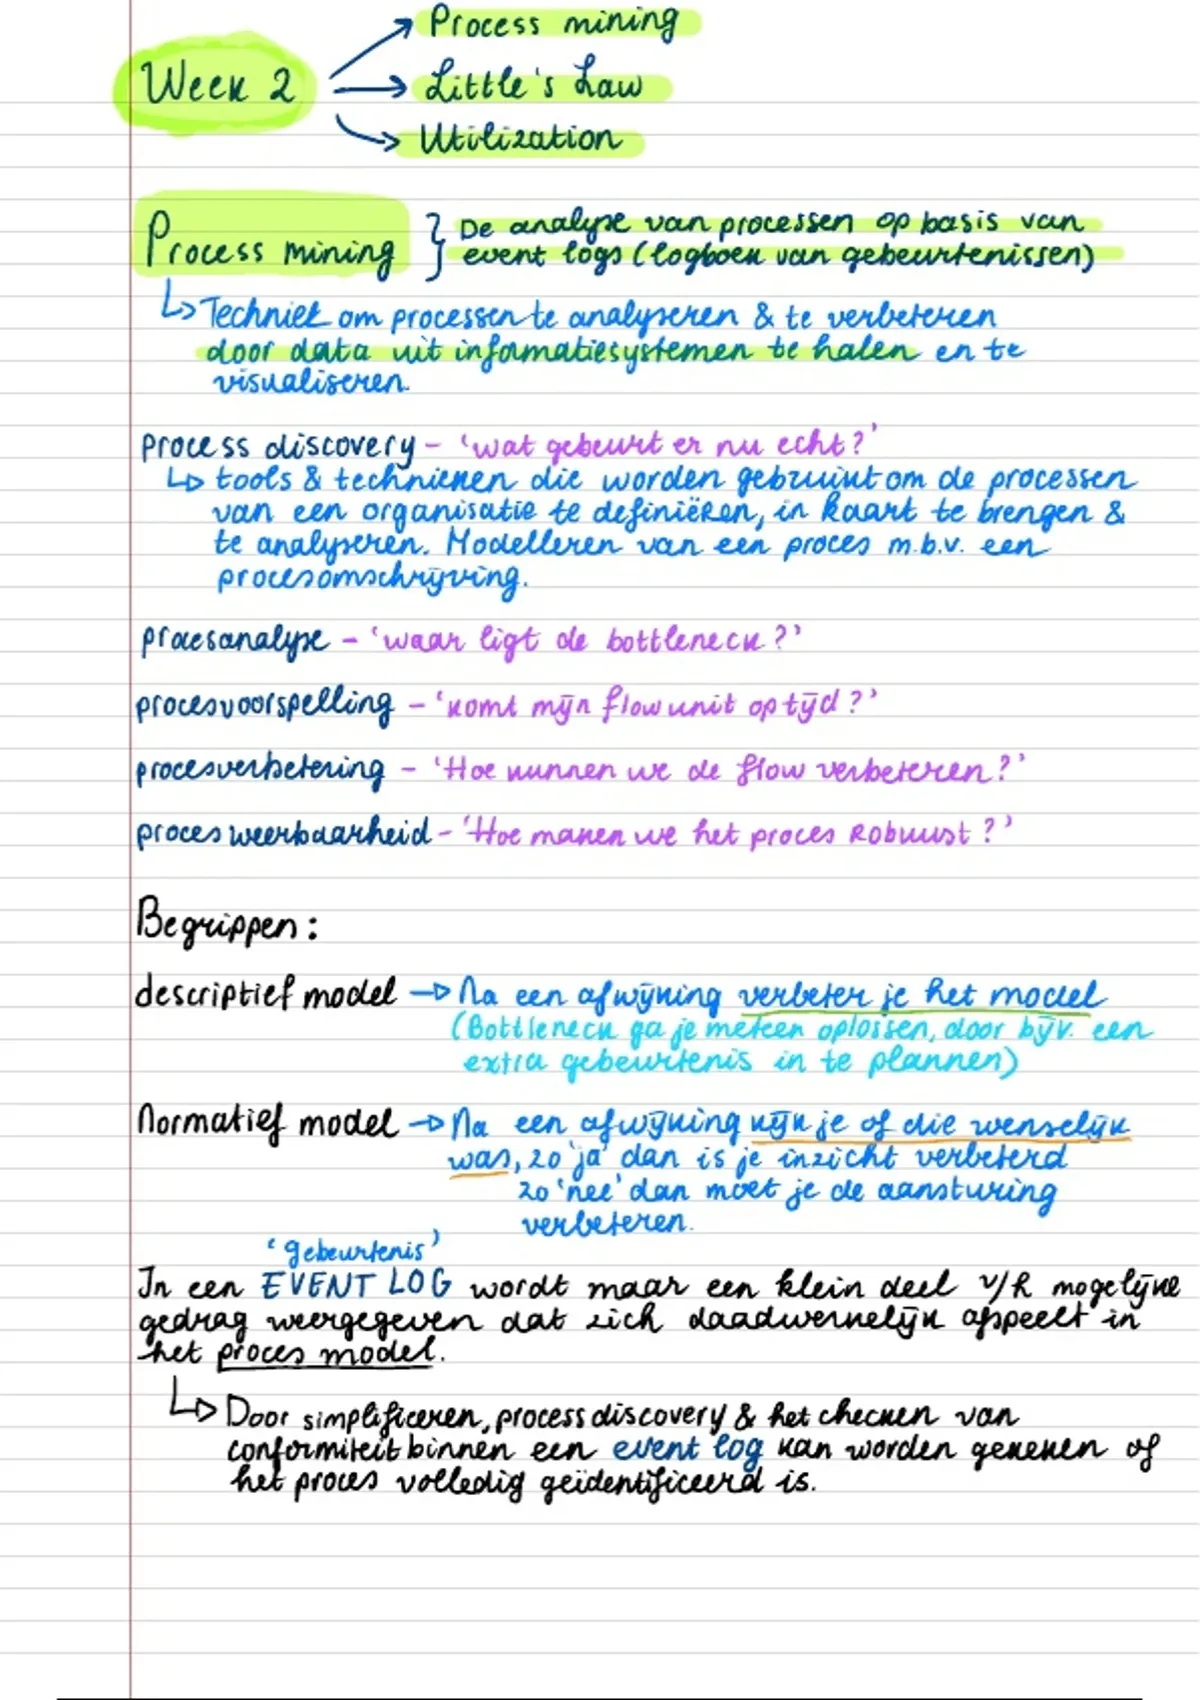 Process mining
Week 2
Little's Law
Utilization
Process mining
De analyse van processen op basis van
event logs (logboek van gebeurtenissen)
Techniek om processen te analyseren & te verbeteren
door data uit informatiesystemen te halen en te
visualiseren.
process discovery - 'wat gebeurt er nu echt?'
tools & technieken die worden gebruikt om de processen
van een organisatie te definiëren, in kaart te brengen &
te analyseren. Modelleren van een proces m.b.v. een
procesomschrijving.
procesanalyse - 'waar ligt de bottleneck?'
procesvoorspelling - 'komt mijn flow unit op tijd?'
procesverbetering - 'Hoe kunnen we de flow verbeteren?'
proces weerbaarheid - 'Hoe maken we het proces Robuust?'
Begrippen:
descriptief model → Na een afwijking verbeter je het model
(Bottleneck ga je meteen oplossen, door bijv. een
extra gebeurtenis in te plannen)
Normatief model → Na een afwijking kijk je of die wenselijk
was, zo 'ja' dan is je inzicht verbeterd
zo 'nee' dan moet je de aansturing
verbeteren.
'gebeurtenis'
In een EVENT LOG wordt maar een klein deel v/h mogelijke
gedrag weergegeven dat zich daadwerkelijk afspeelt in
het proces model.
Door simplificeren, process discovery & het checken van
conformiteit binnen een event log kan worden gekeken of
het proces volledig geïdentificeerd is.